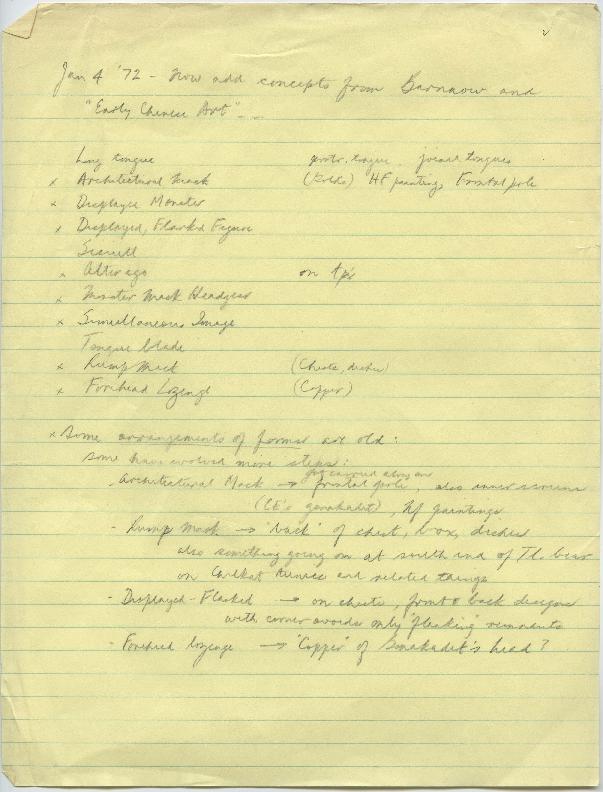 Jan 4 '72 - Now add concepts from Barnaow and
"Early Chinese Art" ...
Long tongue protr. tongue, joined tongues
x Architectural Mask HF painting, Frontal pole
x Displayed Monster
x Displayed, Flanked Figure
Sisiutl
x Alter ego on tp's
x Monster Mask Headgear
x Simultaneous Image
Tongue blade
x Rump Mask (Chests, dishes)
x Forehead Lozenge (Copper)
x Some arrangements of formal art old:
some have evolved more steps:
got carried along on
- Architectural Mask → frontal pole also inner screens
, hf paintings
- Rump Mask → 'back' of chest, box, dishes
also something going on at south end of Tl. bear
on Chilkat tunics and related things
- Displayed-Flanked → on chests, front & back designs
with corner ovoids only 'flanking' remnants
- Forehead lozenge → 'Copper' of Gonakadet's head?